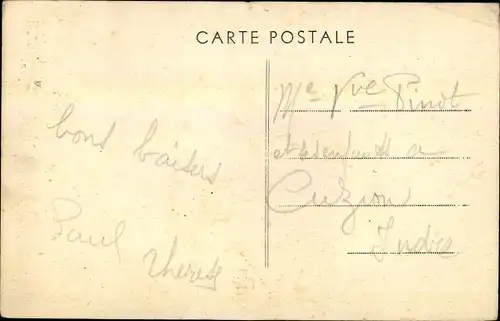 CARTE POSTALE
bons baisers
Paul
Therese
Me Vve Pinot
et ses enfants a
Cuzion
Indre